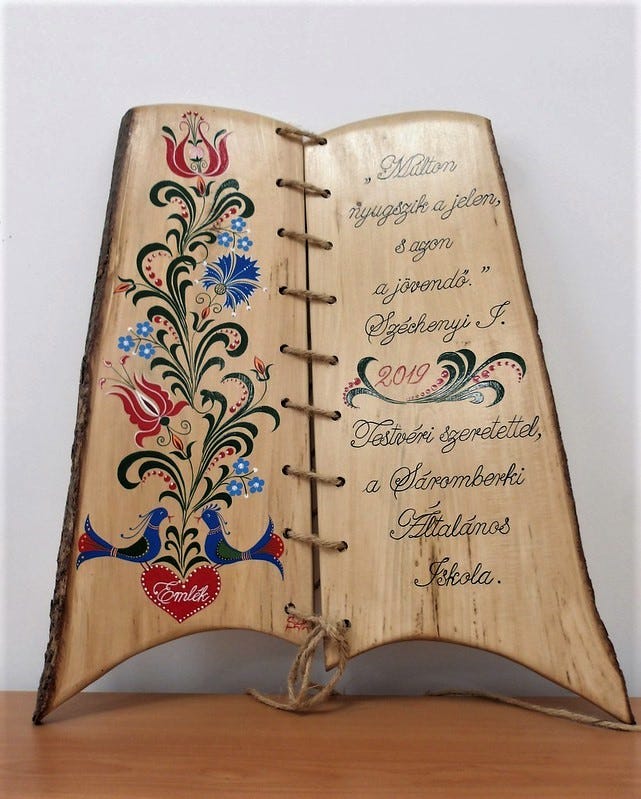 Emlék
„Múlton
nyugszik a jelen,
s azon
a jövendő.”
Széchenyi I.
2019
Testvéri szeretettel,
a Sáromberki
Általános
Iskola.